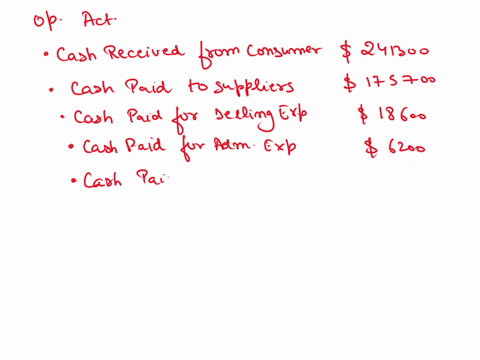 Op. Act.
• Cash Received from Consumer $ 241300
• Cash Paid to Suppliers $ 175700
• Cash Paid for Selling Exp $ 18600
• Cash Paid for Adm. Exp $ 6200
• Cash Pai